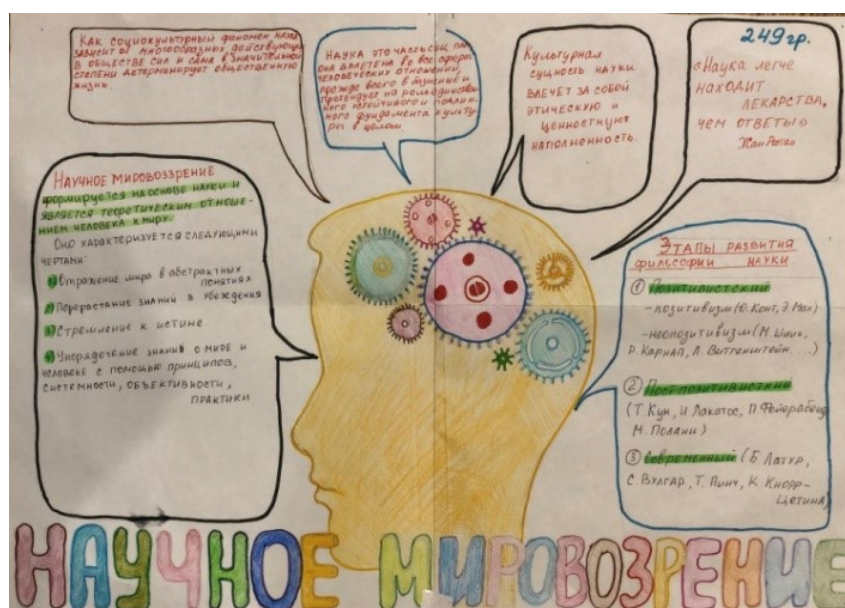 Как социокультурный феномен наука
зависит от многообразных действующих
в обществе сил и сама в значительной
степени детерминирует общественную
жизнь.
Наука это часть
она вплетена во все сферы
человеческих отношений,
прежде всего в бытие и
претендует на роль единствен
ного устойчивого и подлин-
ного фундамента культу
ры в целом
Культурная
сущность науки
влечёт за собой
этическую и
ценностную
наполненность.
249гр.
«Наука легче
находит
лекарства,
чем ответы»
Жан
Научное мировоззрение
формируется на основе науки и
является теоретическим отноше-
нием человека к миру.
Оно характеризуется следующими
чертами:
1) Отражение мира в абстрактных
понятиях
2) Перерастание знаний в убеждения
3) Стремление к истине
4) Упорядочение знаний о мире и
человеке с помощью принципов,
системности, объективности,
практики
Этапы развития
философии науки
1 Позитивистский
-позитивизм (О. Конт, Э. Мах)
-неопозитивизм (М. Шлик,
Р. Карнап, Л. Витгенштейн...)
2 Пост-позитивисткий
(Т. Кун, И Лакотос, П. Фейерабенд
М. Полани)
3 Современный (Б. Латур,
С Вулгар, Т. Пинч, К Кнорр-
Цетина)
НАУЧНОЕ МИРОВОЗРЕНИЕ